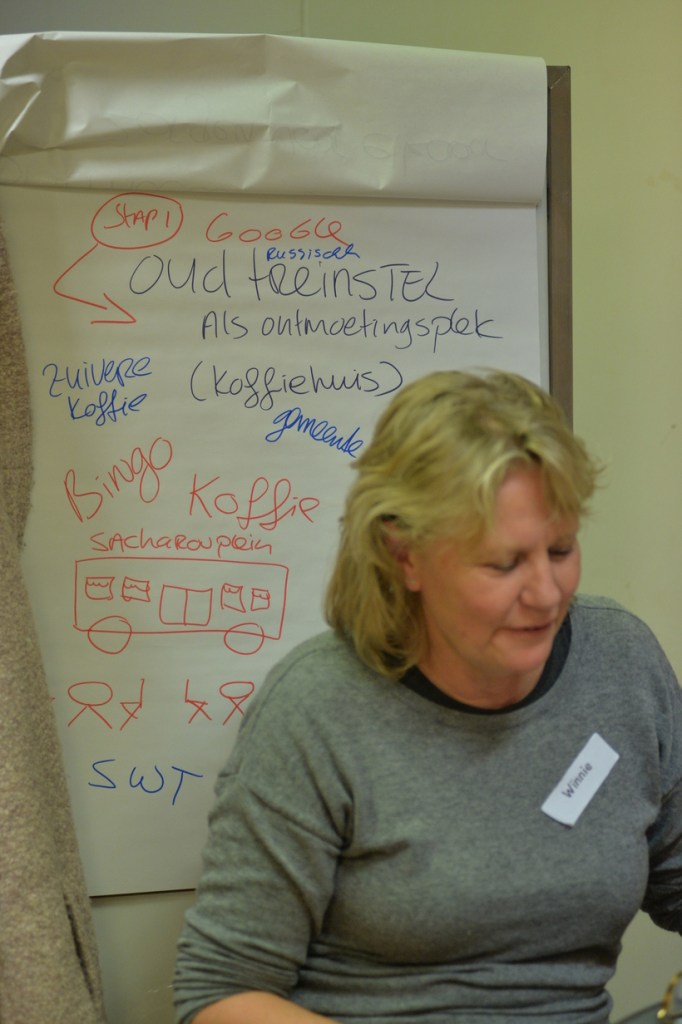 Stap 1
Google
Russisch
Oud treinstel
Als ontmoetingsplek
Zuivere
koffie
(Koffiehuis)
gemeente
Bingo
Koffie
Sacharovplein
SWT
Winnie